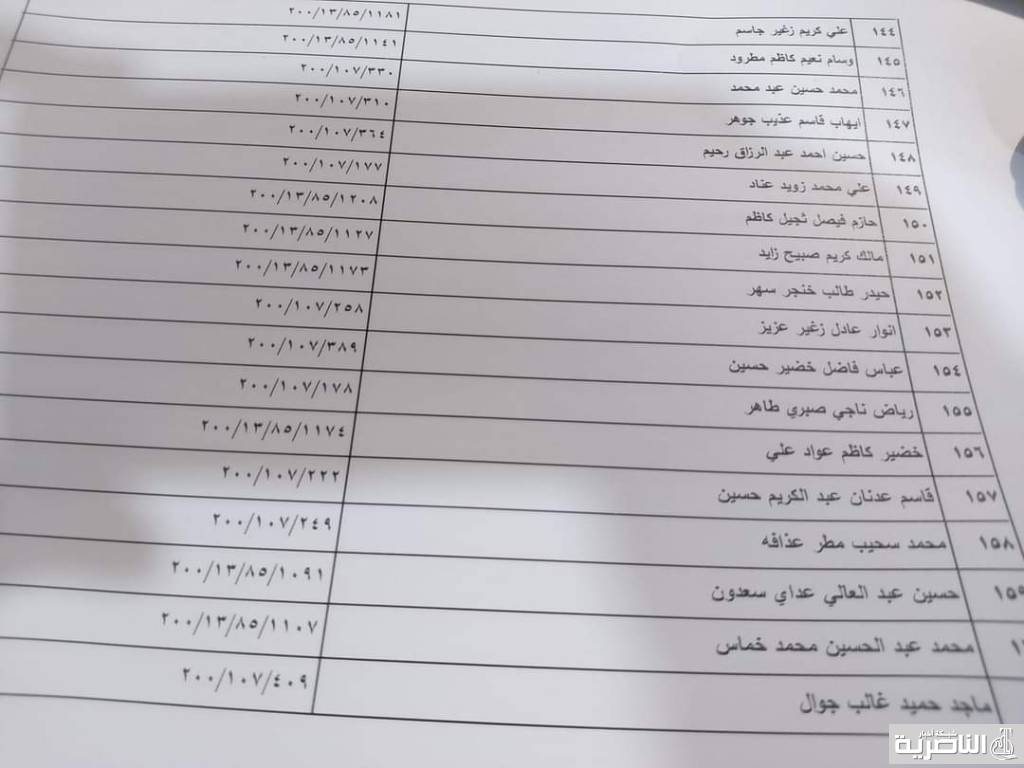 ١٤٤ علي كريم زغير جاسم ٢٠٠/١٣/٨٥/١١٨١
١٤٥ وسام نعيم كاظم مطرود ٢٠٠/١٣/٨٥/١١٤١
١٤٦ محمد حسين عبد محمد ٢٠٠/١٠٧/٣٣٠
١٤٧ ايهاب قاسم عذيب جوهر ٢٠٠/١٠٧/٣١٠
١٤٨ حسين احمد عبد الرزاق رحيم ٢٠٠/١٠٧/٣٦٤
١٤٩ علي محمد زويد عناد ٢٠٠/١٠٧/١٧٧
١٥٠ حازم فيصل ثجيل كاظم ٢٠٠/١٣/٨٥/١٢٠٨
١٥١ مالك كريم صبيح زايد ٢٠٠/١٣/٨٥/١١٢٧
١٥٢ حيدر طالب خنجر سهر ٢٠٠/١٣/٨٥/١١٧٣
١٥٣ انوار عادل زغير عزيز ٢٠٠/١٠٧/٢٥٨
١٥٤ عباس فاضل خضير حسين ٢٠٠/١٠٧/٣٨٩
١٥٥ رياض ناجي صبري طاهر ٢٠٠/١٠٧/١٧٨
١٥٦ خضير كاظم عواد علي ٢٠٠/١٣/٨٥/١١٧٤
١٥٧ قاسم عدنان عبد الكريم حسين ٢٠٠/١٠٧/٢٢٢
١٥٨ محمد سحيب مطر عذافه ٢٠٠/١٠٧/٢٤٩
١٥٩ حسين عبد العالي عداي سعدون ٢٠٠/١٣/٨٥/١٠٩١
محمد عبد الحسين محمد خماس ٢٠٠/١٣/٨٥/١١٠٧
ماجد حميد غالب جوال ٢٠٠/١٠٧/٤٠٩
شبكة أخبار
الناصرية